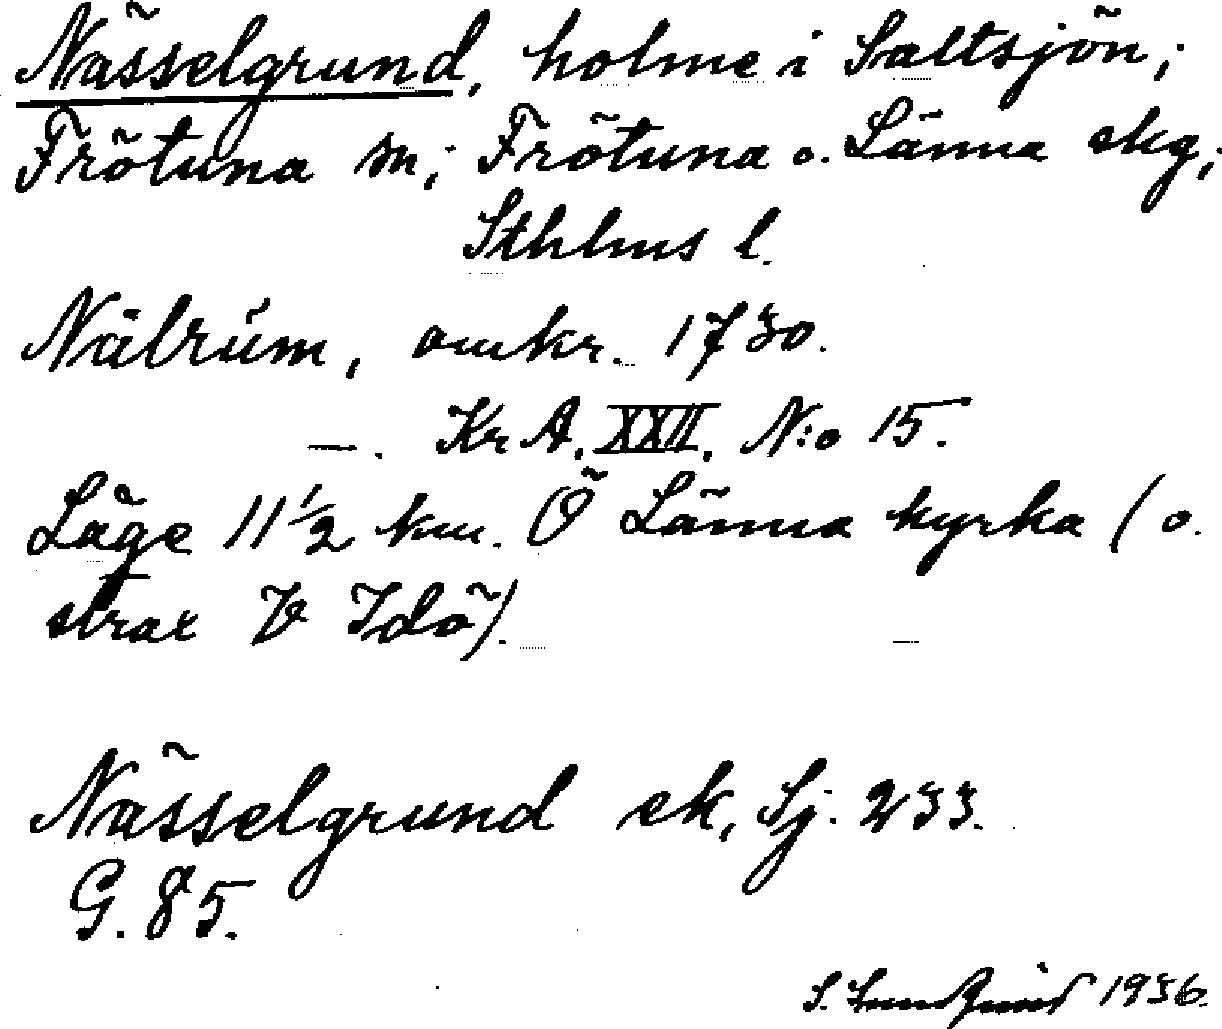 Nässelgrund, holme i Saltsjön;
Frötuna sn; Frötuna o. Länna skg;
Sthlms l.
Nälrúm, omkr. 1730.
—. KrA. XXII. N:o 15.
Läge 11 1/2 km. Ö Länna kyrka (o.
strax V Idö).
Nässelgrund ek, Sj. 233.
G. 85.
S. 1936.